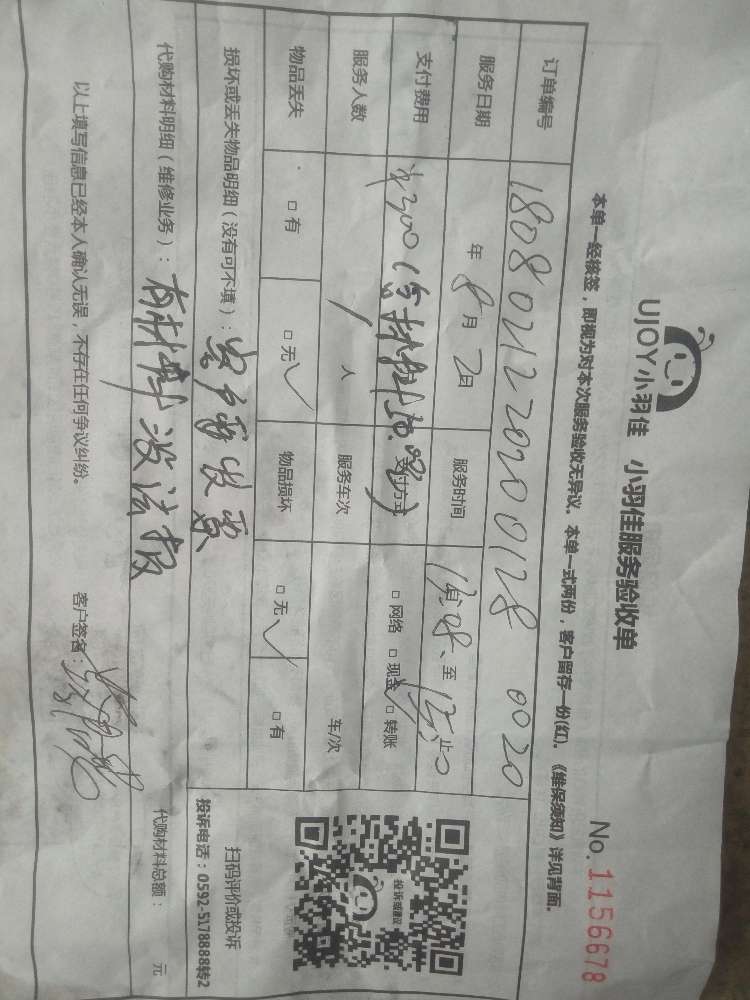 UJOY小羽佳 小羽佳服务验收单
No. 1156678
本单一经核签，即视为对本次服务验收无异议。本单一式两份，客户留存一份(红)。《维保须知》详见背面。
订单编号 1808021220200128 0020
服务日期 年 8月 2日 服务时间 至 止
支付费用 支付方式 □ 网络 □ 现金 □ 转账
服务人数 1 人 服务车次 车/次
物品丢失 □ 有 □ 无 ✓ 物品损坏 □ 无 ✓ □ 有
损坏或丢失物品明细（没有可不填）：
代购材料明细（维修业务）：
代购材料总额： 元
以上填写信息已经本人确认无误，不存在任何争议纠纷。 客户签名：
投诉或建议
扫码评价或投诉
投诉电话：0592-5178888转2